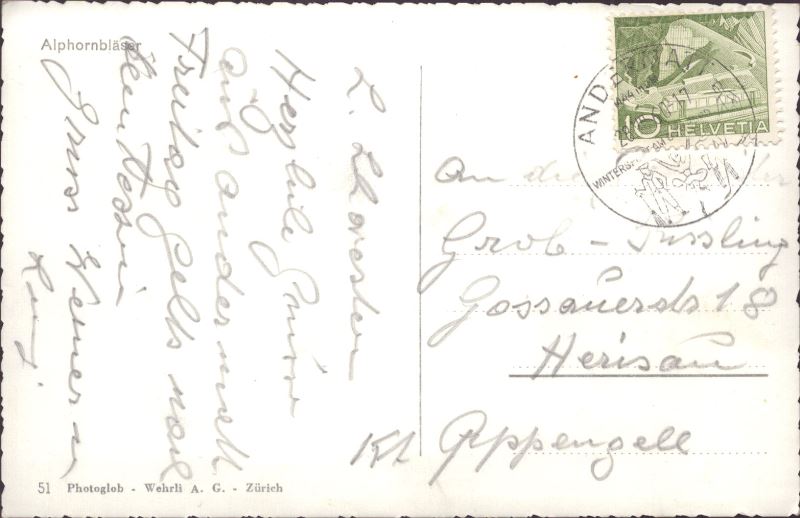 Alphornbläser
L. Schwester
Herzliche Grüsse
aus Andermatt
Freitag Gehts nach
den Tessin
Gruss Werner u.
ANDERMATT
WINTERSP
10 HELVETIA
An die
Grob -
Gossauerstr 18
Herisau
Kt. Appenzell
51 Photoglob - Wehrli A. G. - Zürich